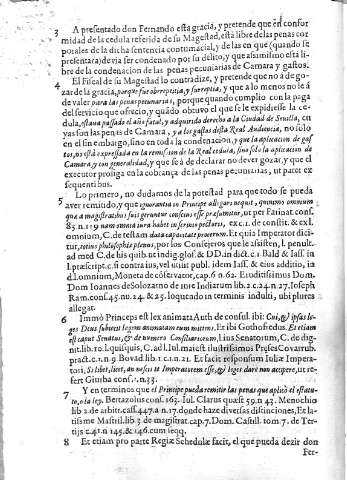 3 A presentado don Fernando esta gracia, y pretende que en confor
midad de la cedula referida de su Magestad, està libre de las penas cor
porales de la dicha sentencia contumacial, y de las en que (quando se
presentara) devia ser condenado por su delito, y que assimismo està li-
bre de la condenacion de las penas pecuniarias de Camara y gastos.
4 El Fiscal de su Magestad lo contradize, y pretende que no à de go-
zar de la gracia, porque fue obreptitia, y sureptia, y que a lo menos no le à
de valer para las penas pecuniarias, porque quando cumplio con la paga
del servicio que ofrecio, y quãdo obtuvo el que se le expidiesse la ce-
dula, estava passado el año fatal, y adquirido derecho a la Ciudad de Sevilla, cu
yas son las penas de Camara, y a los gastos desta Real Audiencia, no solo
en el sin embargo, sino en toda la condenacion, y que la aplicacion de gas
tos, no està expressada en la remission de la Real cedula, sino solo la aplicacion de
Camara, y con generalidad, y que se à de declarar no dever gozar, y que el
executor prosiga en la cobrança de las penas pecuniarias, ut patet ex
sequentibus.
5 Lo primero, no dudamos de la potestad para que todo se pueda
aver remitido, y que ignorantia in Principe alligari nequit, quinimo omnium
quæ a magistratibus suis geruntur conscius esse præsumitur, ut per Farinat. cons.
85. n. 119 nam omnia iura habet in scrinio pectoris, ex c. 1. de constit. & ex l.
omnium, C. de testam. data capacitate præsentium. Et quia Imperator dici
tur, totius philosophiæ plenus, por los Consejeros que le assisten, l. penult.
ad med C. de his quib. ut indig. glos. & DD. in dict. c. 1 Bald. & Iass. in
l. præscript. c. si contra ius, vel utilit publ. idem Iass. & eius additio, in
d. l. omnium, Moneta de cõservator, cap. 6 n. 62. Eruditissimus Dom.
Dom Ioannes de Solorzano de iure Indiarum lib. 2. c. 24. n. 27. Ioseph
Ram. cons. 45. nu. 24. & 25. loquendo in terminis indulti, ubi plures
allegat.
6 Immò Princeps est lex animata Auth. de consul. ibi: Cui, & ipsas le-
ges Deus subiecit legem animatam eum mittens. Et ibi Gothofredus. Et etiam
est caput Senatus, & de numero Consiliariorum, l. ius Senatorum, C. de dig-
nit. lib. 10. l. quisquis, C. ad l. Iul. maiest illustrissimus Præses Covarrub.
pract. c. 1. n. 9 Bovad lib. 1. c. 1. n. 21. Et facit responsum Iuliæ Impera-
tori, Si libet, licet, an nescis te Imperatorem esse, & leges dare non accipere, ut re-
fert Giurba cons. 1. n. 23.
7 Y en terminos que el Principe pueda remitir las penas que aplicò el estatu-
to, o la ley. Bertazolus cons. 163. Iul. Clarus quæst 59. n 43. Menochio
lib 2 de arbitr. cass. 447. a n. 17. donde haze diversas distinciones, Et la-
tissime Mastril. lib 3 de magistrat. cap. 7. Dom. Castill. tom 7. de Ter-
tijs c. 41. n. 145. & 146. cum seqq.
8 Et etiam pro parte Regiæ Schedulæ facit, el que pueda dezir don
Fer-